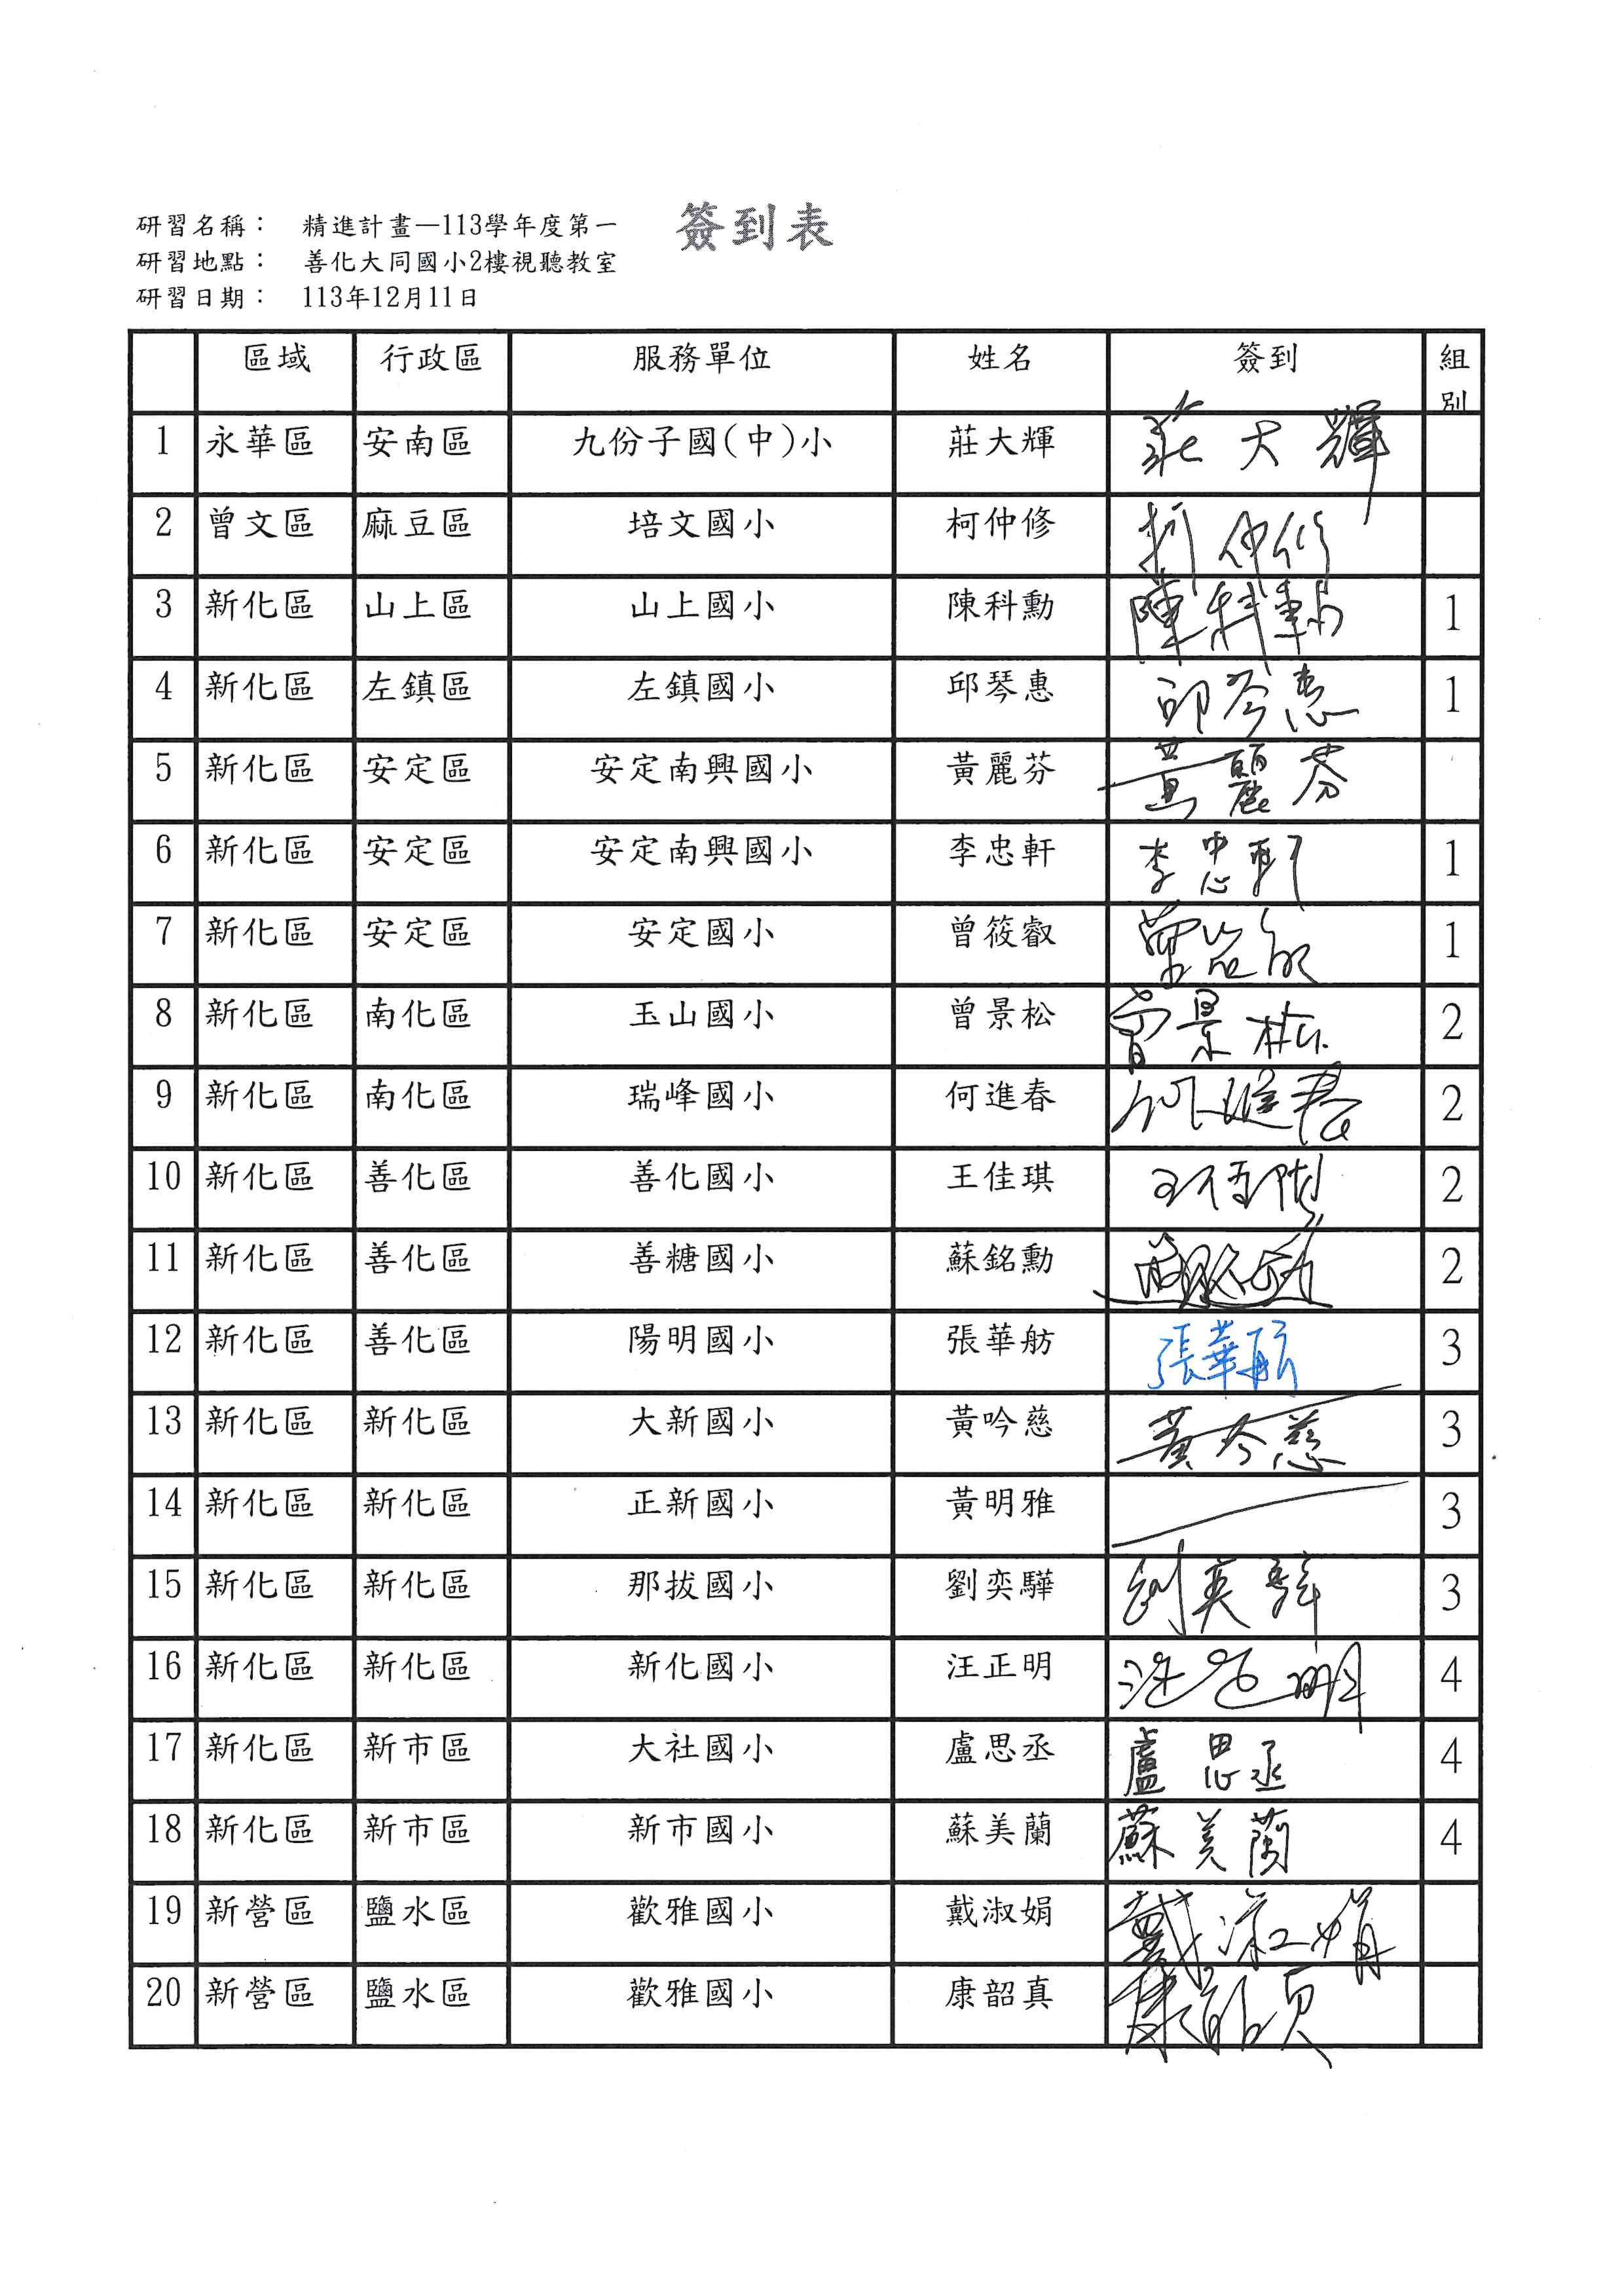 簽到表
研習名稱： 精進計畫—113學年度第一
研習地點： 善化大同國小2樓視聽教室
研習日期： 113年12月11日
區域 行政區 服務單位 姓名 簽到 組別
1 永華區 安南區 九份子國(中)小 莊大輝 莊大輝
2 曾文區 麻豆區 培文國小 柯仲修 柯仲修
3 新化區 山上區 山上國小 陳科勳 陳科勳 1
4 新化區 左鎮區 左鎮國小 邱琴惠 邱琴惠 1
5 新化區 安定區 安定南興國小 黃麗芬 黃麗芬
6 新化區 安定區 安定南興國小 李忠軒 李忠軒 1
7 新化區 安定區 安定國小 曾筱叡 1
8 新化區 南化區 玉山國小 曾景松 曾景松 2
9 新化區 南化區 瑞峰國小 何進春 何進春 2
10 新化區 善化區 善化國小 王佳琪 王佳琪 2
11 新化區 善化區 善糖國小 蘇銘勳 2
12 新化區 善化區 陽明國小 張華舫 張華舫 3
13 新化區 新化區 大新國小 黃吟慈 黃吟慈 3
14 新化區 新化區 正新國小 黃明雅 3
15 新化區 新化區 那拔國小 劉奕驊 劉奕驊 3
16 新化區 新化區 新化國小 汪正明 汪正明 4
17 新化區 新市區 大社國小 盧思丞 盧思丞 4
18 新化區 新市區 新市國小 蘇美蘭 蘇美蘭 4
19 新營區 鹽水區 歡雅國小 戴淑娟 戴淑娟
20 新營區 鹽水區 歡雅國小 康韶真 康韶真